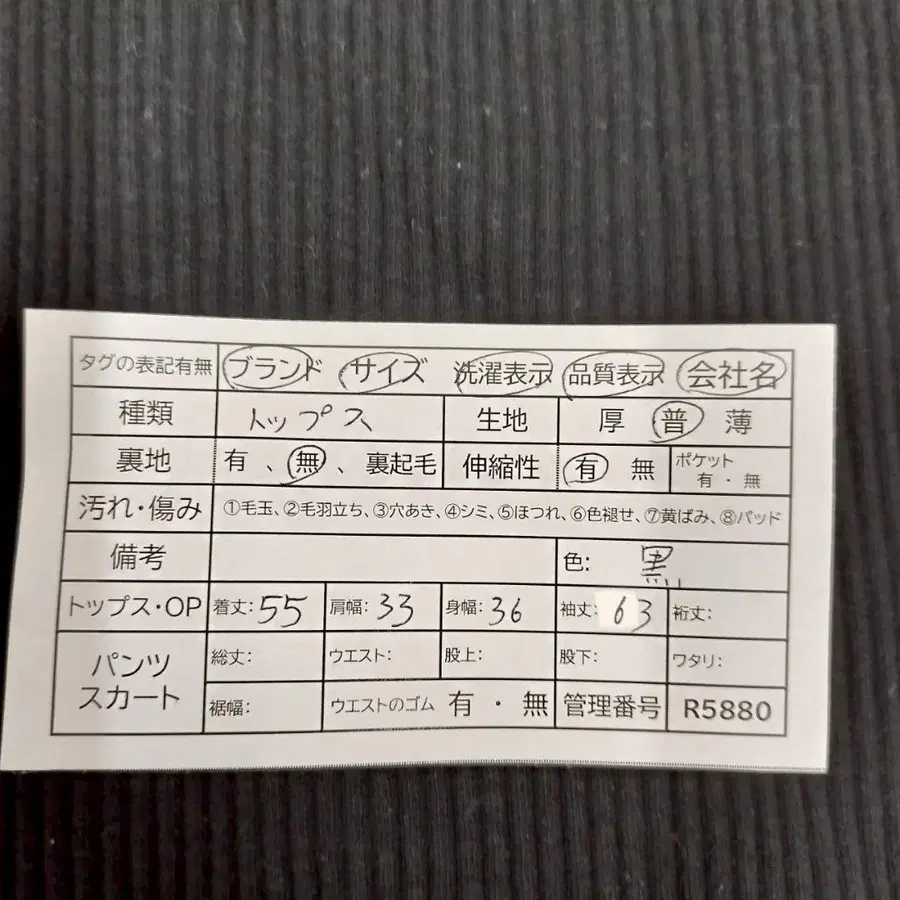 タグの表記有無 ブランド サイズ 洗濯表示 品質表示 会社名
種類 トップス 生地 厚 普 薄
裏地 有、無、裏起毛 伸縮性 有 無 ポケット 有・無
汚れ・傷み ①毛玉、②毛羽立ち、③穴あき、④シミ、⑤ほつれ、⑥色褪せ、⑦黄ばみ、⑧パッド
備考 色: 黒
トップス・OP 着丈: 55 肩幅: 33 身幅: 36 袖丈: 63 裄丈:
パンツ スカート 総丈: ウエスト: 股上: 股下: ワタリ:
裾幅: ウエストのゴム 有・無 管理番号 R5880